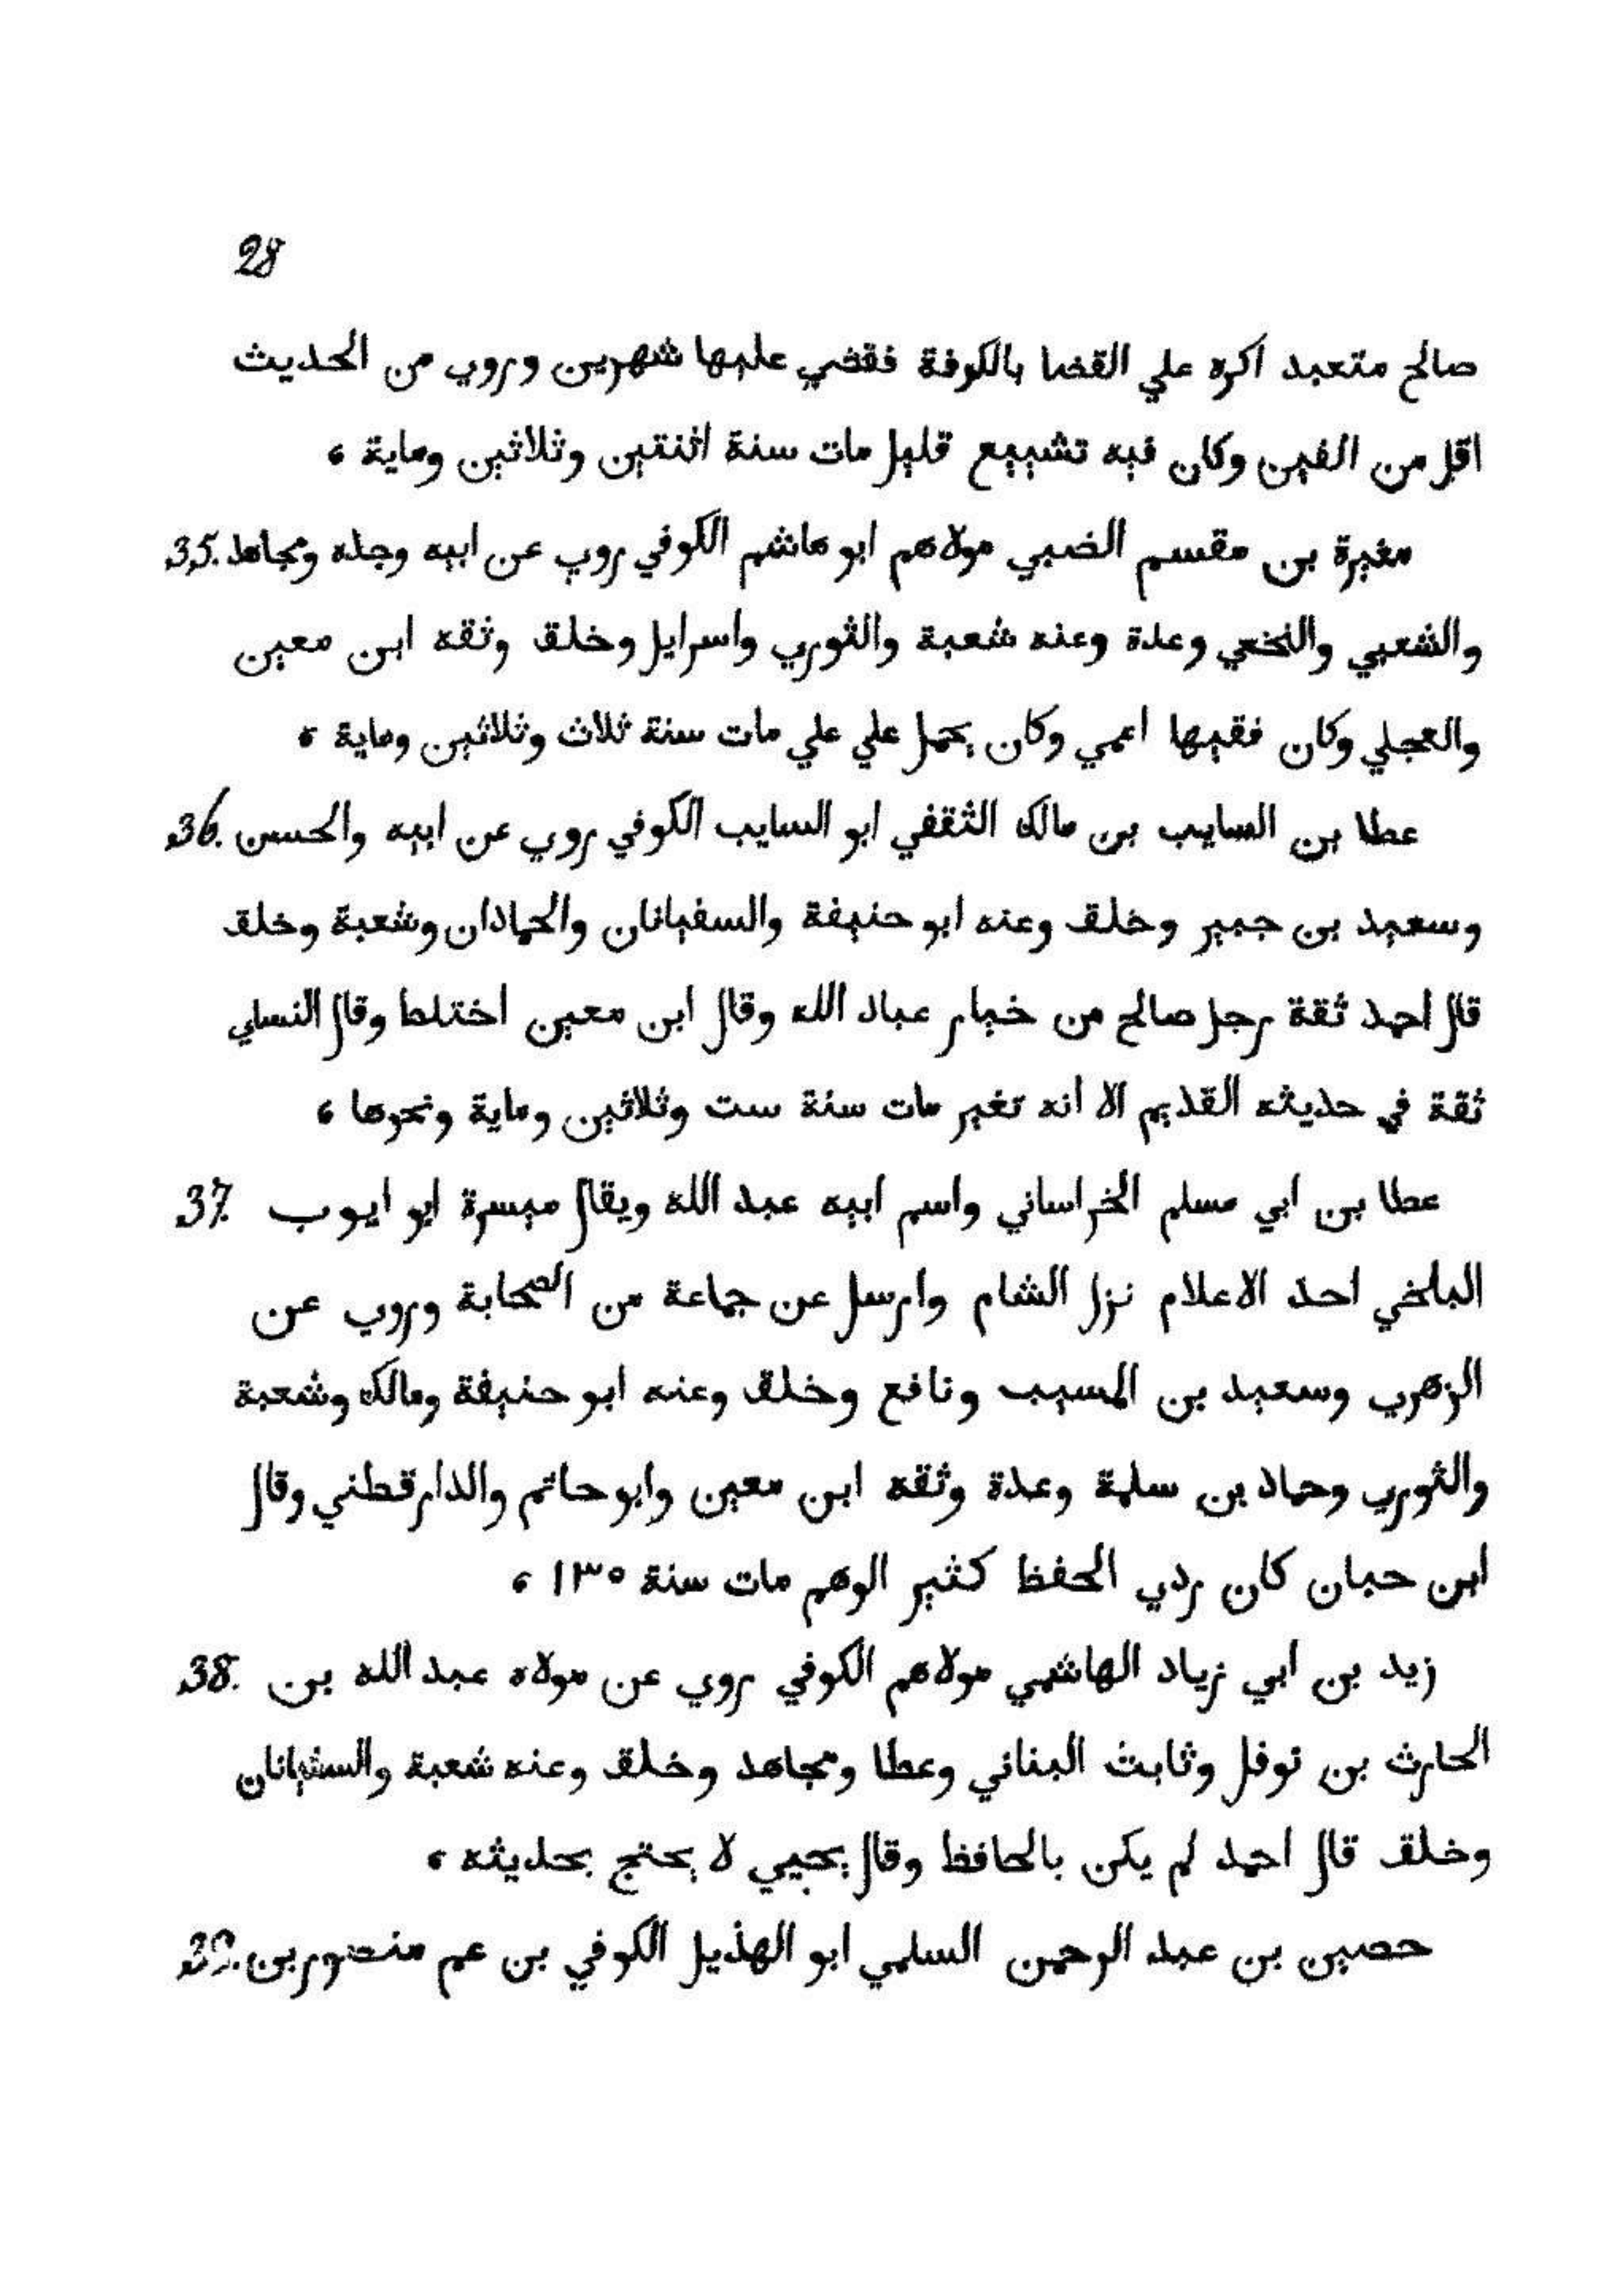 28
صالح متعبد اكره علي القضا بالكوفة فقضي عليها شهرين وروي من الحديث
اقل من الفين وكان فيه تشييع قليل مات سنة اثنتين وثلاثين وماية ،
مغيرة بن مقسم الضبي مولاهم ابو هاشم الكوفي روي عن ابيه وجده ومجاهد 35.
والشعبي والنخعي وعدة وعنه شعبة والثوري واسرايل وخلق وثقه ابن معين
والعجلي وكان فقيها اعمي وكان يحمل علي علي مات سنة ثلاث وثلاثين وماية ،
عطا بن السايب بن مالك الثقفي ابو السايب الكوفي روي عن ابيه والحسن 36.
وسعيد بن جبير وخلق وعنه ابو حنيفة والسفيانان والحمادان وشعبة وخلق
قال احمد ثقة رجل صالح من خيار عباد الله وقال ابن معين اختلط وقال النساي
ثقة في حديثه القديم الا انه تغير مات سنة ست وثلاثين وماية ونحوها ،
عطا بن ابي مسلم الخراساني واسم ابيه عبد الله ويقال ميسرة ابو ايوب 37.
البلخي احد الاعلام نزل الشام وارسل عن جماعة من الصحابة وروي عن
الزهري وسعيد بن المسيب ونافع وخلق وعنه ابو حنيفة ومالك وشعبة
والثوري وحماد بن سلمة وعدة وثقه ابن معين وابو حاتم والدارقطني وقال
ابن حبان كان ردي الحفظ كثير الوهم مات سنة ١٣٥ ،
زيد بن ابي زياد الهاشمي مولاهم الكوفي روي عن مولاه عبد الله بن 38.
الحارث بن نوفل وثابت البناني وعطا ومجاهد وخلق وعنه شعبة والسفيانان
وخلق قال احمد لم يكن بالحافظ وقال يحيي لا يحتج بحديثه ،
حصين بن عبد الرحمن السلمي ابو الهذيل الكوفي بن عم منصور بن 39.